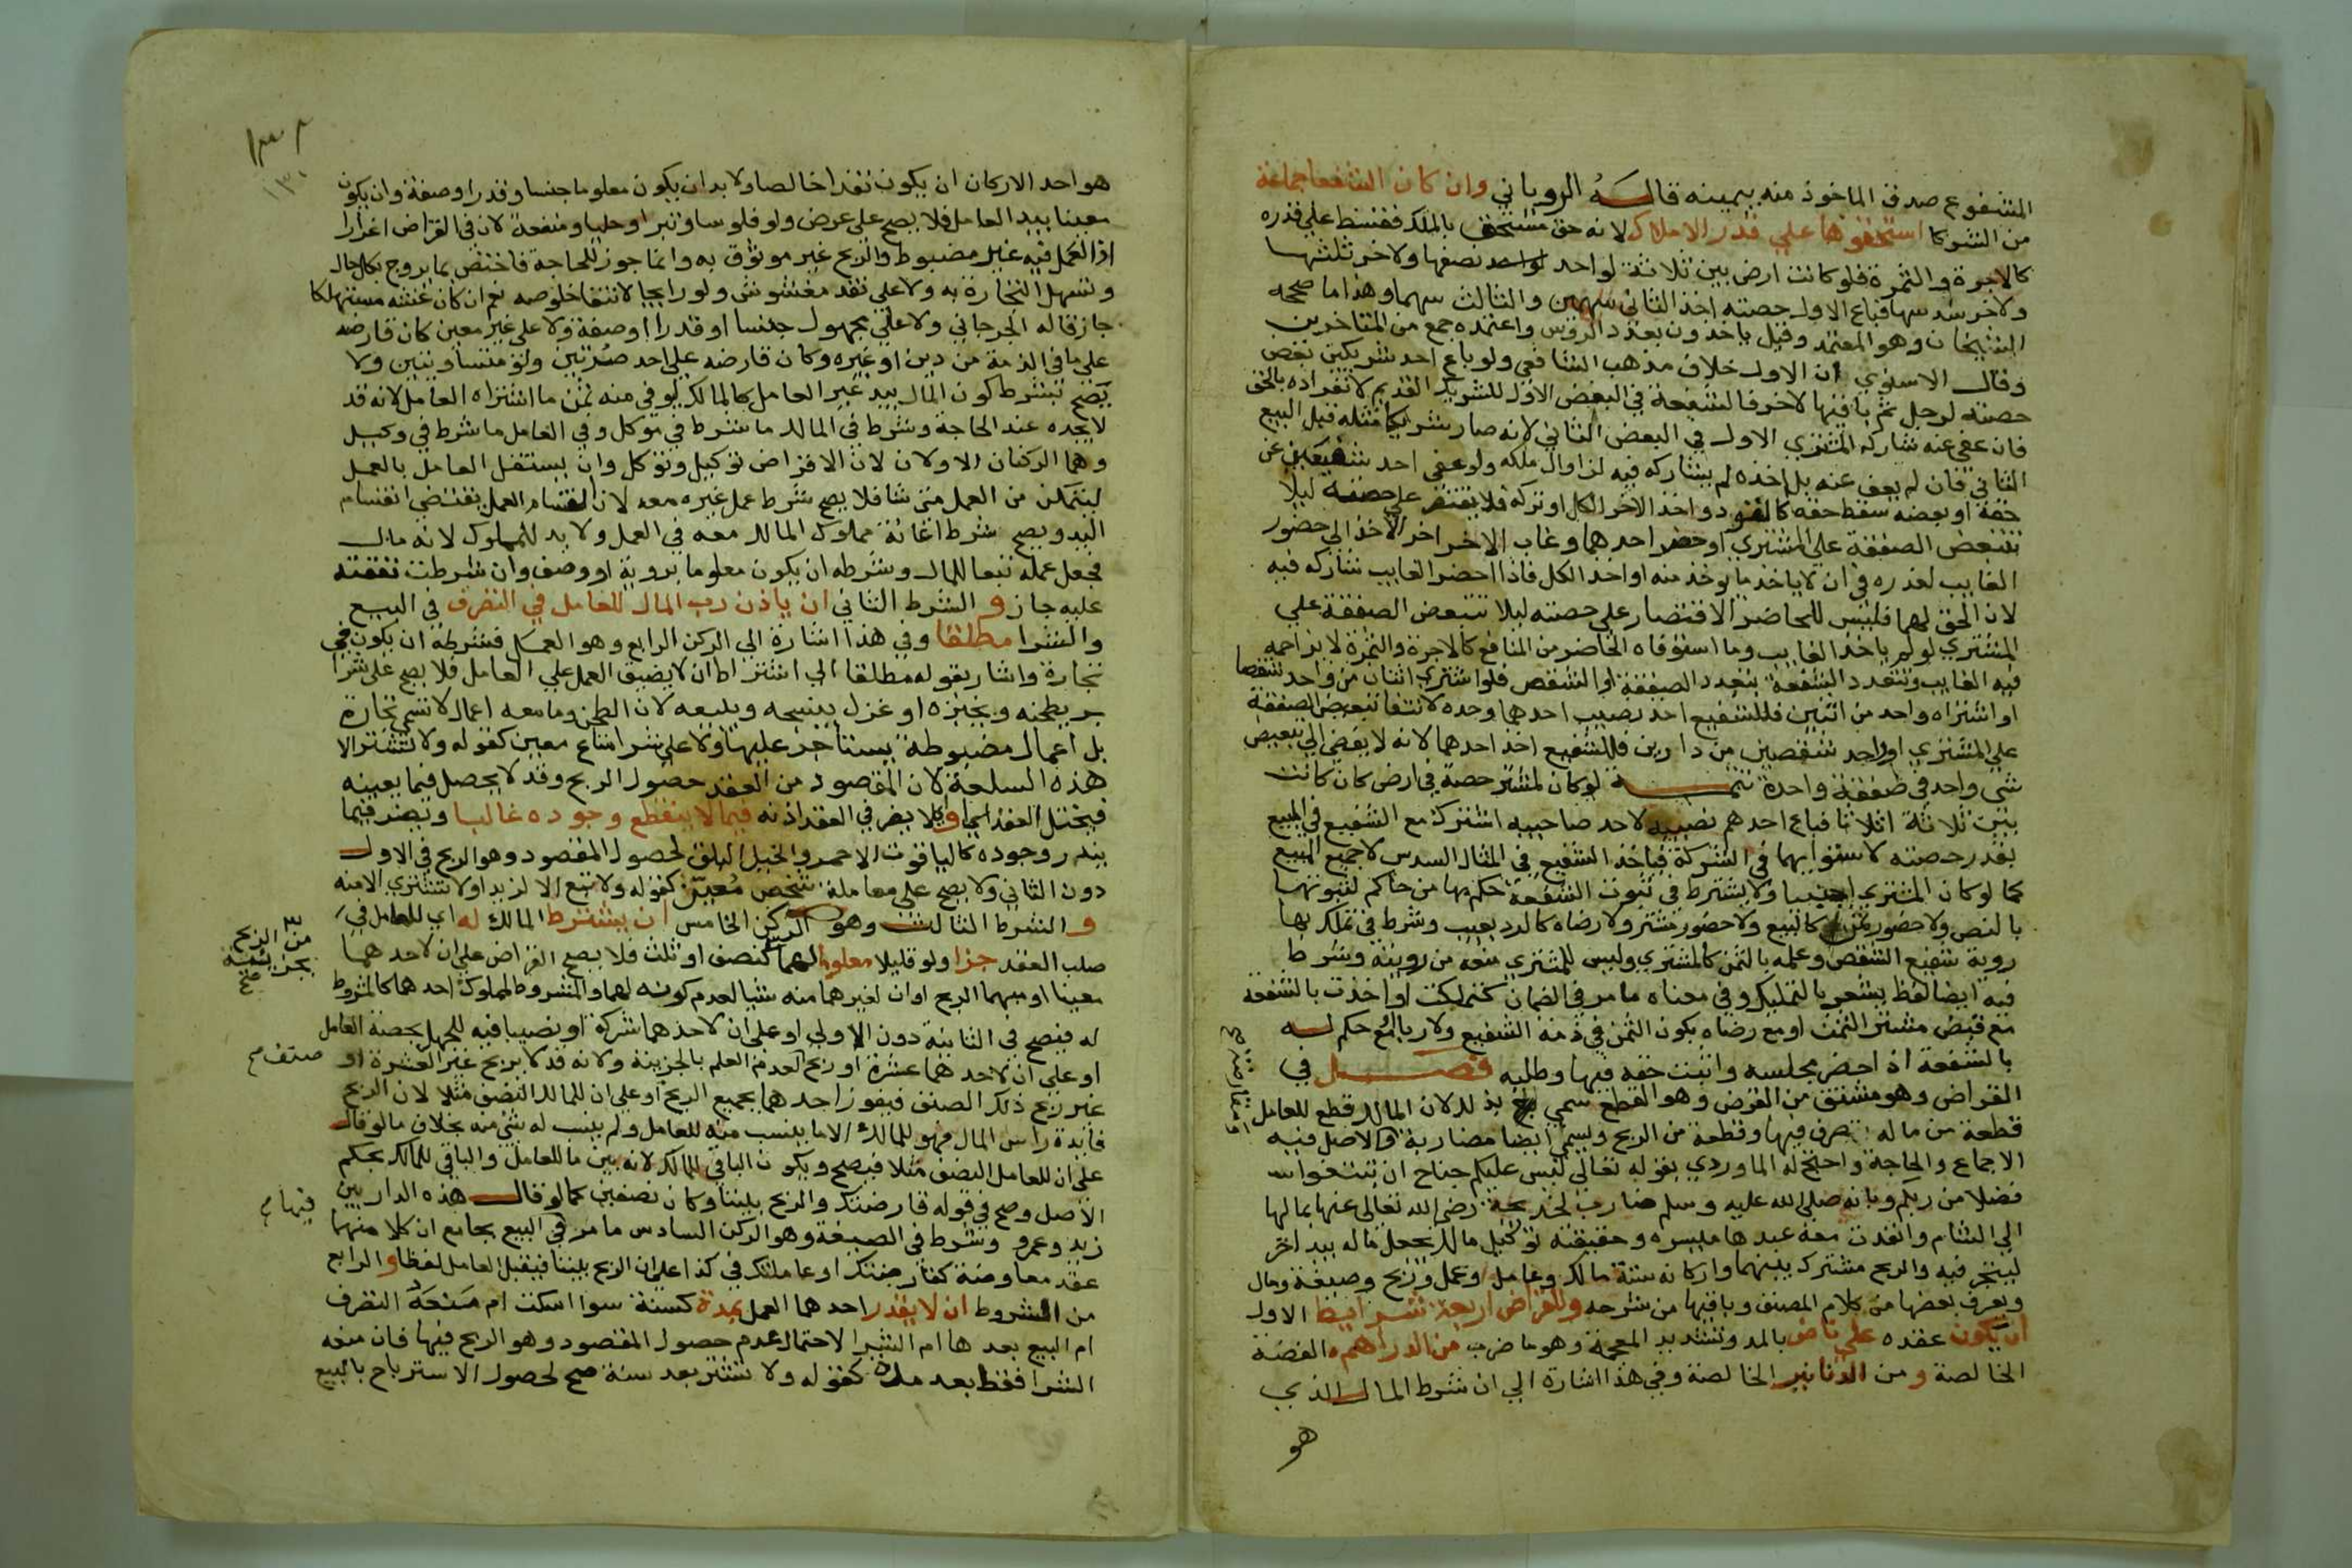 المشفوع صدق الماخوذ منه بيمينه قاله الروياني وان كان الشفعا جماعة
من الشركا استحقوها علي قدر الاملاك لانه حق مستحق بالملك فقسط علي قدره
كالاجرة والثمرة فلو كانت ارض بين ثلاثة لواحد نصفها ولاخر ثلثها
ولاخر سدسها فباع الاول حصته اخذ الثاني سهمين والثالث سهما وهذا ما صححه
الشيخان وهو المعتمد وقيل ياخذون بعدد الروس واعتمده جمع من المتاخرين
وقال الاسنوي ان الاول خلاف مذهب الشافعي ولو باع احد شريكين بعض
حصته لرجل ثم باقيها لاخر فالشفعة في البعض الاول للشريك القديم لانفراده بالحق
فان عفي عنه شاركه المشتري الاول في البعض الثاني لانه صار شريكا مثله قبل البيع
الثاني فان لم يعف عنه بل اخذه لم يشاركه فيه لزوال ملكه ولو عفي احد شفيعين عن
حقه او بعضه سقط حقه كالقود واخذ الاخر الكل او تركه فلا يقتصر علي حصته ليلا
تتبعض الصفقة علي المشتري او حضر احدهما وغاب الاخر اخر الاخذ الي حضور
الغايب لعذره في ان لا ياخذ ما يوخذ منه او اخذ الكل فاذا احضر الغايب شاركه فيه
لان الحق لهما فليس للحاضر الاقتصار علي حصته ليلا تتبعض الصفقة علي
المشتري لو لم ياخذ الغايب وما استوفاه الحاضر من المنافع كالاجرة والثمرة لا يزاحمه
فيه الغايب وتتعدد الشفعة بتعدد الصفقة او الشقص فلو اشتري اثنان من واحد شقصا
او اشتراه واحد من اثنين فللشفيع اخذ نصيب احدهما وحده لانتفا تبعيض الصفقة
علي المشتري او واحد شقصين من دارين فللشفيع اخذ احدهما لانه لا يفضي الي تبعيض
شي واحد في صفقة واحدة تتمة لو كان لمشتر حصة في ارض كان كانت
بين ثلاثة اثلاثا فباع احدهم نصيبه لاحد صاحبيه اشترك مع الشفيع في المبيع
بقدر حصته لاستوايهما في الشركة فياخذ الشفيع في المثال السدس لا جميع المبيع
كما لو كان المشتري اجنبيا ولا يشترط في ثبوت الشفعة حكم بها من حاكم لثبوتها
بالنص ولا حضور ثمن كالبيع ولا حضور مشتر ولا رضاه كالرد بعيب وشرط في تملك بها
روية شفيع الشقص وعلمه بالثمن كالمشتري وليس للمشتري منعه من رويته وشرط
فيه ايضا لفظ يشعر بالتمليك وفي معناه ما مر في الضمان كتملكت او اخذت بالشفعة
مع قبض مشتر الثمن او مع رضاه بكون الثمن في ذمة الشفيع ولا ربا او مع حكم له
بالشفعة اذا حضر مجلسه واثبت حقه فيها وطلبه فصل في
القراض وهو مشتق من القرض وهو القطع سمي بذلك لان المالك قطع للعامل
قطعة من ماله يتصرف فيها وقطعة من الربح ويسمي ايضا مضاربة والاصل فيه
الاجماع والحاجة واحتج له الماوردي بقوله تعالي ليس عليكم جناح ان تبتغوا
فضلا من ربكم وبانه صلي الله عليه وسلم ضارب لخديجة رضي الله تعالي عنها بمالها
الي الشام وانفذت معه عبدها ميسره وحقيقته توكيل مالك بجعل ماله بيد اخر
ليتجر فيه والربح مشترك بينهما واركانه ستة مالك وعامل وعمل وربح وصيغة ومال
ويعرف بعضها من كلام المصنف وباقيها من شرحه وللقراض اربعة شرايط الاول
ان يكون عقده علي ناض بالمد وتشديد المعجمة وهو ما ضرب من الدراهم الفضة
الخالصة ومن الدنانير الخالصة وفي هذا اشارة الي ان شرط المال الذي
هو
١٣٠
هو احد الاركان ان يكون نقدا خالصا ولا بد ان يكون معلوما جنسا وقدرا وصفة وان يكون
معينا بيد العامل فلا يصح علي عرض ولو فلوسا وتبرا وحليا ومنفعة لان في القراض اغرارا
اذ العمل فيه غير مضبوط والربح غير موثوق به وانما جوز للحاجة فاختص بما يروج بكل حال
وتسهل التجارة به ولا علي نقد مغشوش ولو رايجا لانتفا خلوصه نعم ان كان غشه مستهلكا
جاز قاله الجرجاني ولا علي مجهول جنسا او قدرا او صفة ولا علي غير معين كان قارضه
علي ما في الذمة من دين او غيره وكان قارضه علي احد صرتين ولو متساويتين ولا
يصح بشرط كون المال بيد غير العامل كالمالك ليوفي منه ثمن ما اشتراه العامل لانه قد
لا يجده عند الحاجة وشرط في المالك ما شرط في موكل وفي العامل ما شرط في وكيل
وهما الركنان الاولان لان القراض توكيل وتوكل وان يستقل العامل بالعمل
ليتمكن من العمل متي شا فلا يصح شرط عمل غيره معه لان انقسام العمل يقتضي انقسام
اليد ويصح شرط اعانة مملوك المالك معه في العمل ولا يد للمملوك لانه مال
فجعل عمله تبعا للمال وشرطه ان يكون معلوما بروية او وصف وان شرطت نفقته
عليه جاز و الشرط الثاني ان ياذن رب المال للعامل في التصرف في البيع
والشرا مطلقا وفي هذا اشارة الي الركن الرابع وهو العمل فشرطه ان يكون في
تجارة واشار بقوله مطلقا الي اشتراط ان لا يضيق العمل علي العامل فلا يصح علي شرا
بر يطحنه ويخبزه او غزل ينسجه ويبيعه لان الطحن وما معه اعمال لا تسمي تجارة
بل اعمال مضبوطة يستاجر عليها ولا علي شرا متاع معين كقوله ولا تشتر الا
هذه السلعة لان المقصود من العقد حصول الربح وقد لا يحصل فيما يعينه
فيختل العقد اما ولا يضر في العقد اذنه فيما لا ينقطع وجوده غالبا ويضر فيما
يندر وجوده كالياقوت الاحمر والخيل البلق لحصول المقصود وهو الربح في الاول
دون الثاني ولا يصح علي معاملة شخص معين كقوله ولا تبع الا لزيد او لا تشتري الا منه
و الشرط الثالث وهو الركن الخامس ان يشترط المالك له اي للعامل في
صلب العقد جزا ولو قليلا معلوما لهما كنصف او ثلث فلا يصح القراض علي ان لاحدهما
معينا او مبهما الربح او ان لغيرهما منه شيا لعدم كونه لهما والمشروط لمملوك احدهما كالمشروط
له فيصح في الثانية دون الاولي او علي ان لاحدهما شركة او نصيبا فيه للجهل بحصة العامل
او علي ان لاحدهما عشرة او ربح لعدم العلم بالجزيية ولانه قد لا يربح غير العشرة او
غير ربح ذلك الصنف فيفوز احدهما بجميع الربح او علي ان للمالك النصف مثلا لان الربح
فايدة راس المال فهو للمالك الا ما ينسب منه للعامل ولم ينسب له شي منه بخلاف ما لو قال
علي ان للعامل النصف مثلا فيصح ويكون الباقي للمالك لانه بين ما للعامل والباقي للمالك بحكم
الاصل وصح في قوله قارضتك والربح بيننا وكان نصفين كما لو قال هذه الدار بين
زيد وعمرو وشرط في الصيغة وهو الركن السادس ما مر في البيع بجامع ان كلا منهما
عقد معاوضة كقارضتك او عاملتك في كذا علي ان الربح بيننا فيقبل العامل لفظا و الرابع
من الشروط ان لا يقدر احدهما العمل بمدة كسنة سوا اسكت ام منعه التصرف
ام البيع بعدها ام الشرا لاحتمال عدم حصول المقصود وهو الربح فيها فان منعه
الشرا فقط بعد مدة كقوله ولا تشتر بعد سنة صح لحصول الاسترباح بالبيع
من الربح
بجزييته
صح
صنف
فيها